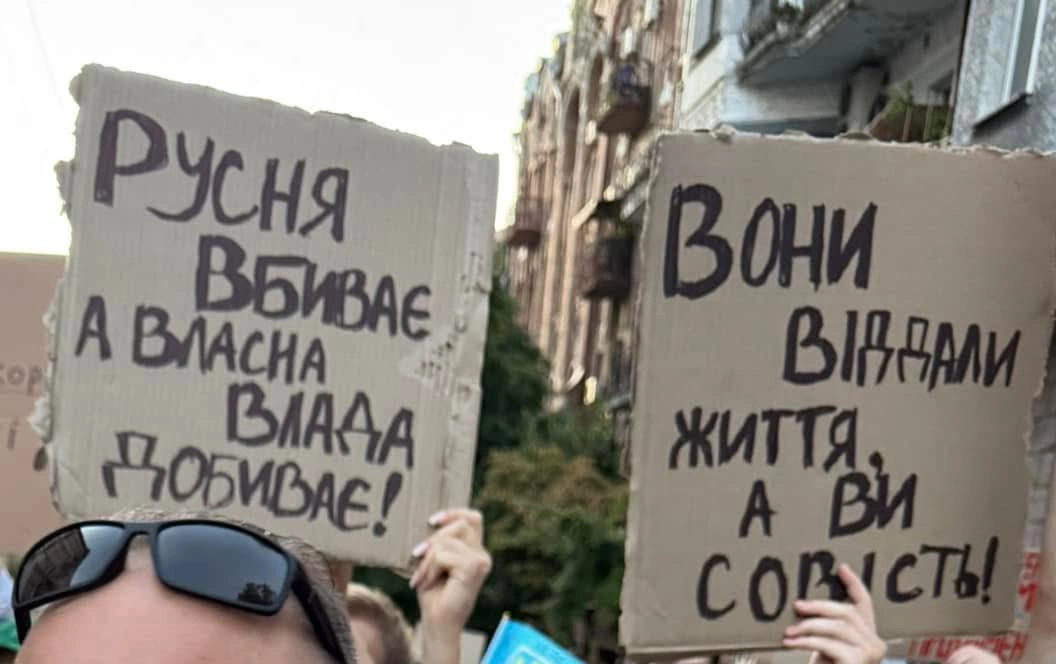 Русня
вбиває
а власна
влада
добиває!
Вони
віддали
життя,
а ви
совість!